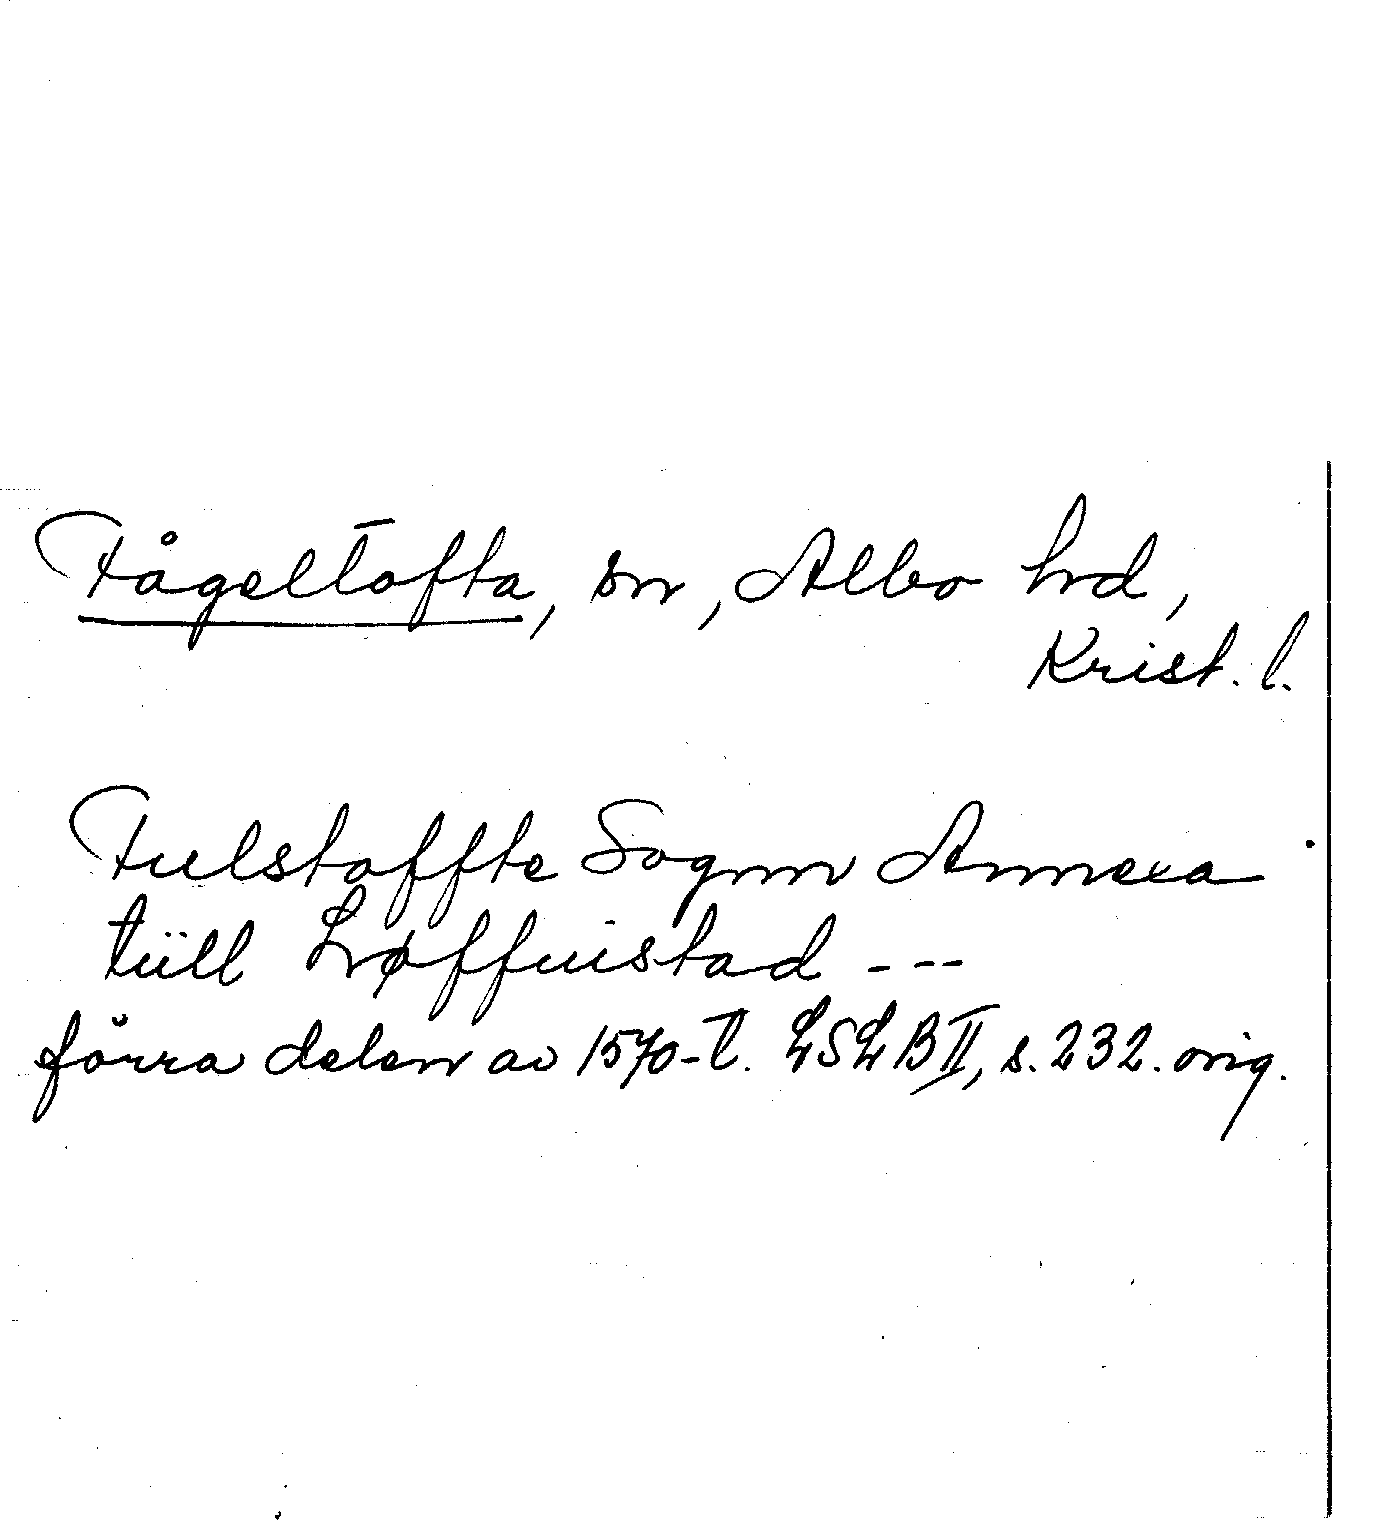 Fågeltofta, sn, Albo hrd,
Krist. l.
Fulstoffte Sognn Annexa
tüll Løffuistad ---
förra delen av 1570-t. LSLB II, s. 232. orig.